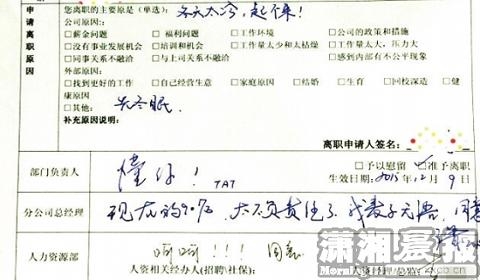 您离职的主要原是(单选): 冬天太冷,起不来!
申请离职原因
公司原因:
□薪金问题 □福利问题 □工作环境 □公司的政策和措施
□没有事业发展机会 □培训和机会 □工作量太少和太枯燥 □工作量太大,压力大
□同事关系不融洽 □与上司关系不融洽 □感到内部有不公平现象
外部原因:
□找到更好的工作 □自己经营生意 □家庭原因 □结婚 □生育 □回校深造 □健
康原因
□其他: 去冬眠
补充原因说明:
离职申请人签名:
部门负责人
懂你! TAT
□予以慰留 □准予离职
生效日期:2015 12月9日
分公司总经理
现在的90后,太不负责任了,我表示无语,同意
人力资源部
呵呵!!! 同意
人资相关经办人(招聘\社保):
潇湘晨报